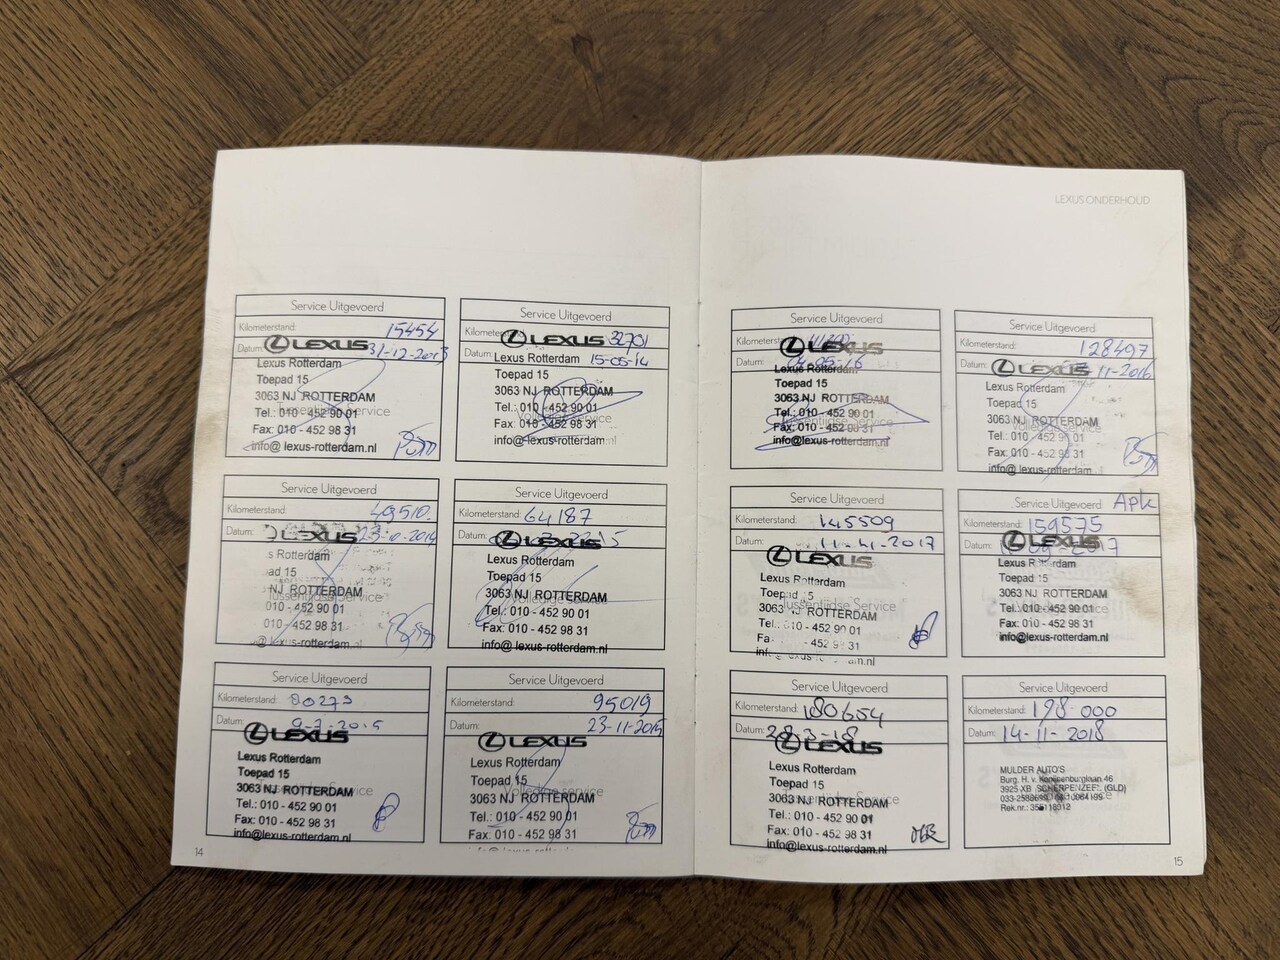 LEXUS ONDERHOUD
Service Uitgevoerd
Kilometerstand: 15454
Datum: 31-12-2013
LEXUS
Lexus Rotterdam
Toepad 15
3063 NJ ROTTERDAM
Tel.: 010 - 452 90 01
Fax: 010 - 452 98 31
info@lexus-rotterdam.nl
Service Uitgevoerd
32701
Datum: 15-05-14
LEXUS
Lexus Rotterdam
Toepad 15
3063 NJ ROTTERDAM
Tel.: 010 - 452 90 01
Fax: 010 - 452 98 31
info@lexus-rotterdam.nl
Service Uitgevoerd
Kilometerstand: 49510.
Datum: 23-10-2014
LEXUS
s Rotterdam
ad 15
NJ ROTTERDAM
Tussentijdse Service
010 - 452 90 01
010 - 452 98 31
@lexus-rotterdam.nl
Service Uitgevoerd
Kilometerstand: 64187
Datum:
LEXUS
Lexus Rotterdam
Toepad 15
3063 NJ ROTTERDAM
Volledige service
Tel.: 010 - 452 90 01
Fax: 010 - 452 98 31
info@lexus-rotterdam.nl
Service Uitgevoerd
Kilometerstand: 80273
Datum: 9-7-2015
LEXUS
Lexus Rotterdam
Toepad 15
3063 NJ ROTTERDAM
Tel.: 010 - 452 90 01
Fax: 010 - 452 98 31
info@lexus-rotterdam.nl
Service Uitgevoerd
Kilometerstand: 95019
Datum: 23-11-2015
LEXUS
Lexus Rotterdam
Toepad 15
Volledige service
3063 NJ ROTTERDAM
Tel.: 010 - 452 90 01
Fax: 010 - 452 98 31
14
Service Uitgevoerd
Datum: 04-05-16
LEXUS
Lexus Rotterdam
Toepad 15
3063 NJ ROTTERDAM
Tel.: 010 - 452 90 01
Tussentijdse Service
Fax: 010 - 452 98 31
info@lexus-rotterdam.nl
Service Uitgevoerd
Kilometerstand: 128497
Datum: 11-2016
LEXUS
Lexus Rotterdam
Toepad 15
3063 NJ ROTTERDAM
Tel.: 010 - 452 90 01
Fax: 010 - 452 98 31
info@lexus-rotterdam.nl
Service Uitgevoerd
Kilometerstand: 145509
Datum: 11-4-2017
LEXUS
Lexus Rotterdam
Toepad 15
3063 NJ ROTTERDAM
Tussentijdse Service
Tel.: 010 - 452 90 01
452 98 31
Service Uitgevoerd Apk
Kilometerstand: 159575
LEXUS
Lexus Rotterdam
Toepad 15
3063 NJ ROTTERDAM
Tel.: 010 - 452 90 01
Fax: 010 - 452 98 31
info@lexus-rotterdam.nl
Service Uitgevoerd
Kilometerstand: 180654
Datum: 28-3-18
LEXUS
Lexus Rotterdam
Toepad 15
3063 NJ ROTTERDAM
Tel.: 010 - 452 90 01
Fax: 010 - 452 98 31
info@lexus-rotterdam.nl
Service Uitgevoerd
Kilometerstand: 198-000
Datum: 14-11-2018
MULDER AUTO'S
Burg. H. v. Konijnenburglaan 46
3925 XB SCHERPENZEEL (GLD)
15